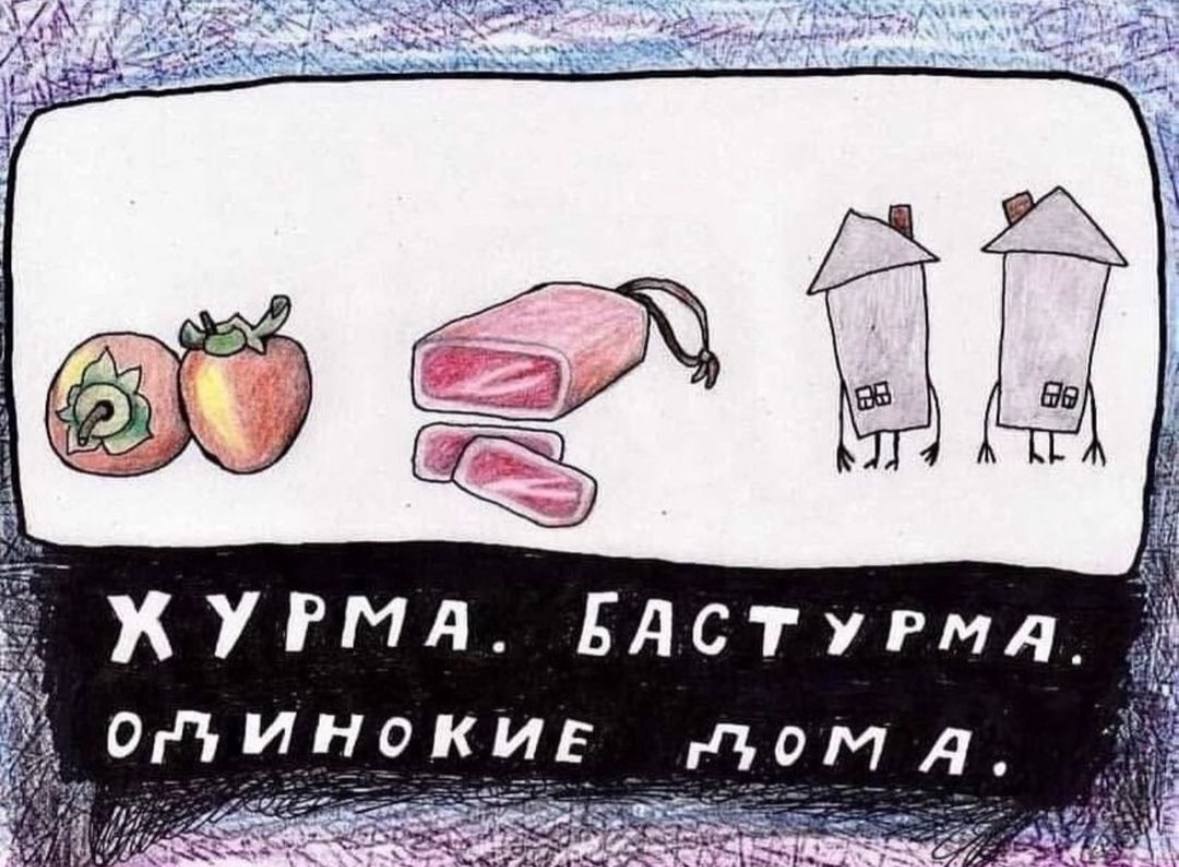 ХУРМА. БАСТУРМА.
ОДИНОКИЕ ДОМА.